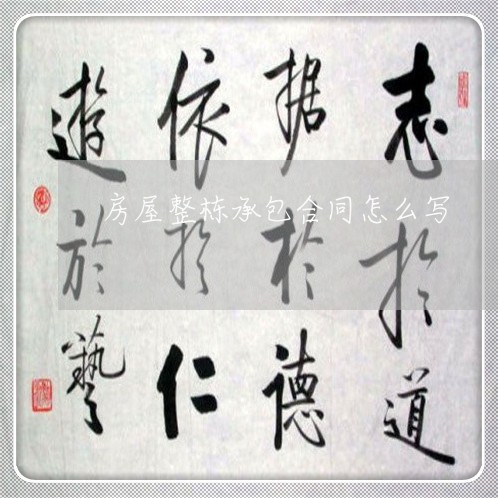 志於道
据於德
依於仁
遊於藝
房屋整栋承包合同怎么写